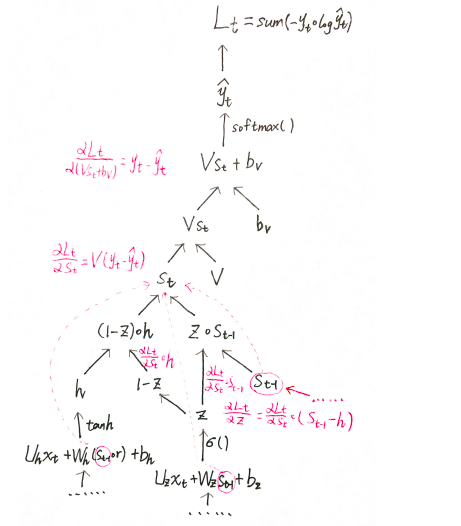 L_t = sum(-y_t∘log ŷ_t)
ŷ_t
softmax()
∂L_t/∂(Vs_t+b_v) = y_t - ŷ_t
Vs_t + b_v
Vs_t
b_v
∂L_t/∂S_t = V(y_t - ŷ_t)
S_t
V
(1-z)∘h
z∘S_t-1
∂L_t/∂S_t∘h
∂L_t/∂S_t∘S_t-1
S_t-1
h
1-z
......
z
∂L_t/∂z = ∂L_t/∂S_t∘(S_t-1 - h)
tanh
σ()
U_h x_t + W_h(S_t-1∘r) + b_h
U_z x_t + W_z S_t-1 + b_z
......
......